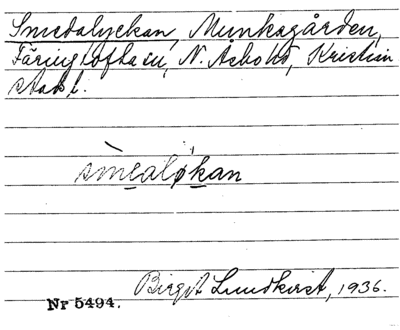 Smedalyckan, Munksgården,
Färingtofta sn, N. Åsbo hd, Kristian
stads l.
smealøkan
Birgit Lundkvist, 1936.
Nr 5494.